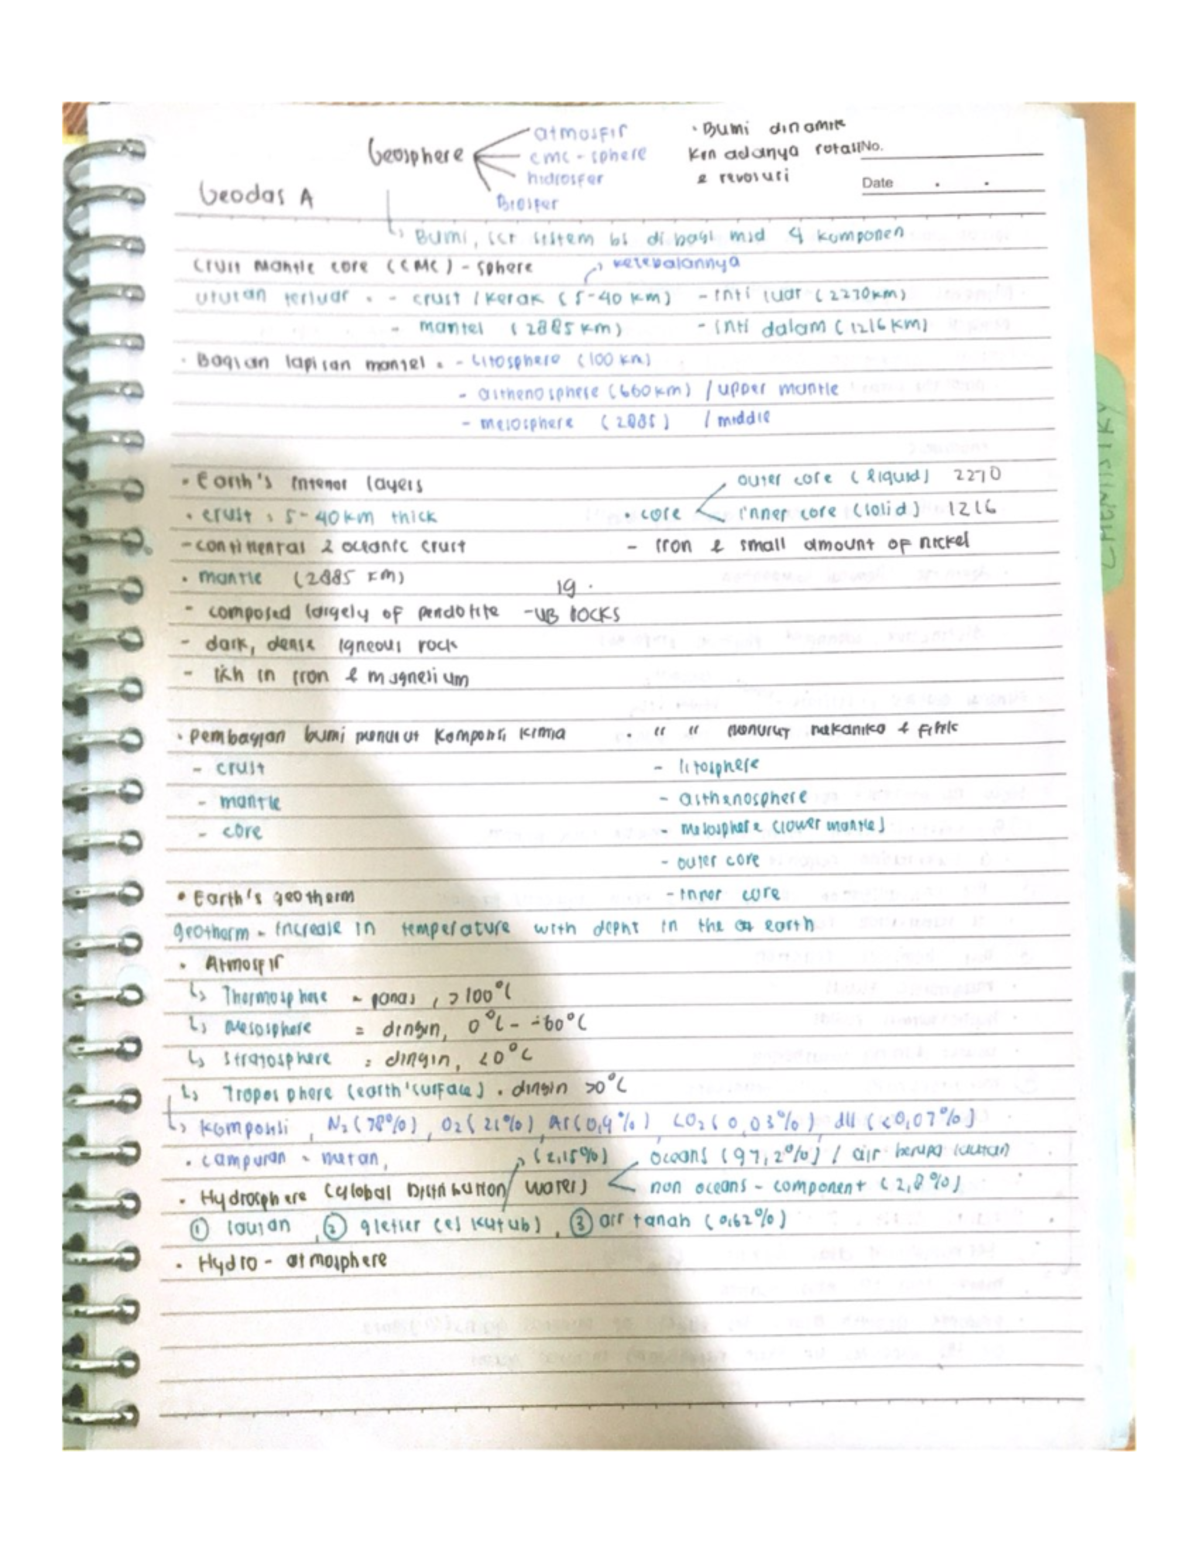 Geosphere
atmosfir
cmc - sphere
hidrosfer
Biosfer
· Bumi dinamik
krn adanya rotasi
& revolusi
No.
Date
Geodas A
↳ Bumi, scr sistem bs di bagi mjd 4 komponen
Crust Mantle core (CMC) - sphere
→ ketebalannya
urutan terluar = - crust / kerak (5-40 km) - inti luar (2270km)
- mantel (2885 km) - inti dalam (1216 km)
· Bagian lapisan mantel = - Litosphere (100 km)
- asthenosphere (660km) / upper mantle
- mesosphere (2885) / middle
· Earth's interior layers
· crust : 5-40 km thick
- continental & oceanic crust
· mantle (2885 km)
- composed largely of peridotite - UB rocks
19 .
- dark, dense igneous rock
- rich in iron & magnesium
· core
outer core (liquid) 2270
inner core (solid) 1216
- iron & small amount of nickel
· Pembagian bumi menurut komposisi kimia
- crust
- mantle
- core
· " " menurut mekanika & fisik
- litosphere
- asthenosphere
- mesosphere (lower mantle)
- outer core
- inner core
• Earth's geotherm
geotherm = increase in temperature with depht in the earth
· Atmosfir
↳ Thermosphere = panas, >100°C
↳ Mesosphere = dingin, 0°C - -60°C
↳ Stratosphere = dingin, <0°C
↳ Troposphere (earth' surface) = dingin >0°C
↳ komposisi, N₂ (78%), O₂ (21%), Ar (0,9%) CO₂ (0,03%) dll (<0,07%)
· campuran = metan,
· Hydrosphere (Global Distribution / water)
(2,15%)
oceans (97,2%) / air berupa lautan
non oceans - component (2,8%)
① lautan, ② gletser (es kutub), ③ air tanah (0,62%)
· Hydro - atmosphere
CHEMISTRY